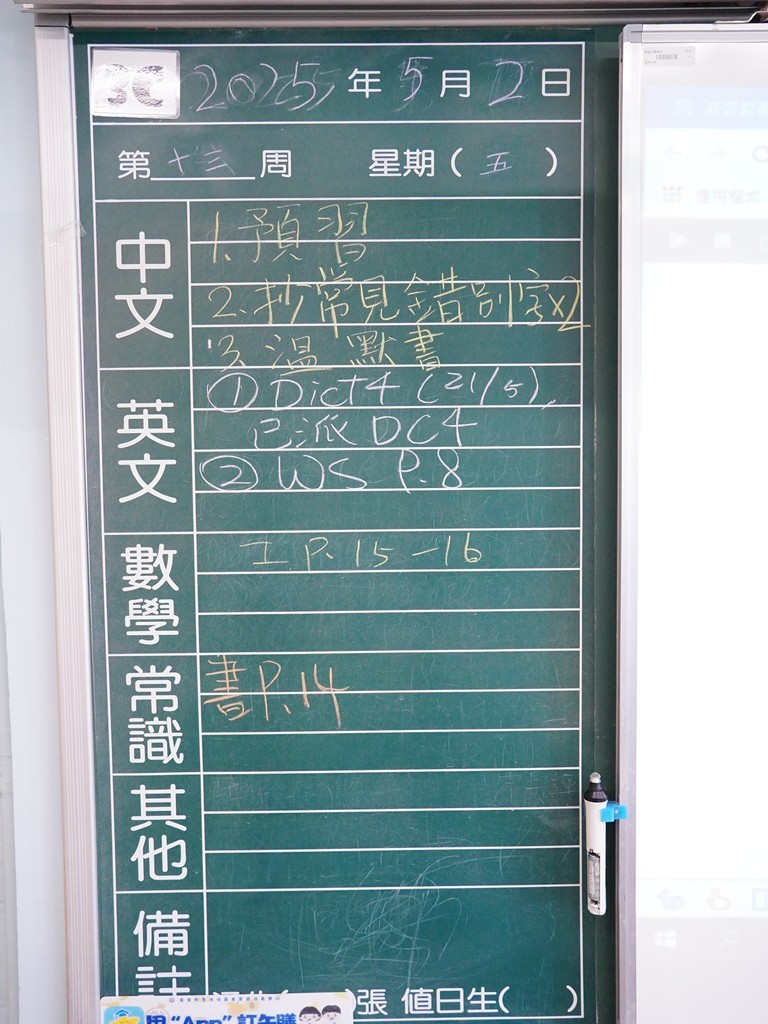 3C 2025年5月2日
第十三周 星期(五)
中文
1.預習
2.抄常見錯別字x2
3.溫默書
英文
① Dict 4 (21/5),
已派 DC4
② WS P.8
數學
工 P.15-16
常識
書P.14
其他
備註
張 值日生( )
用“App”訂午膳